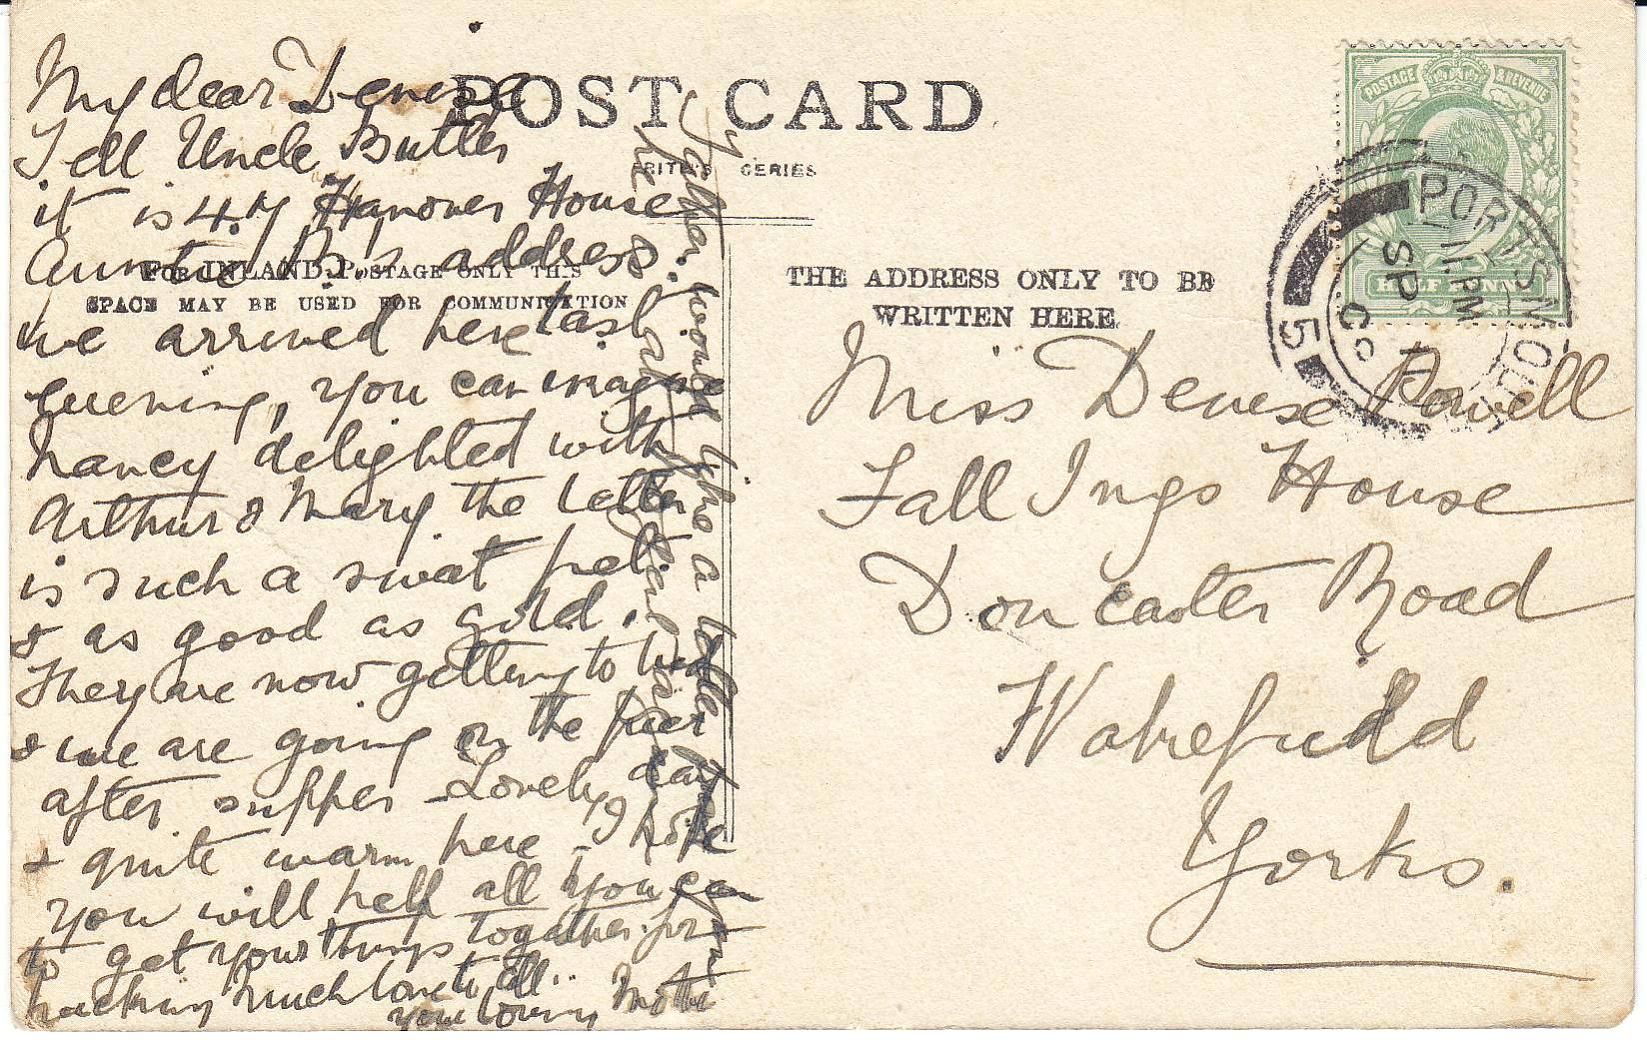 POST CARD
FRITH'S SERIES
FOR INLAND POSTAGE ONLY THIS
SPACE MAY BE USED FOR COMMUNICATION
THE ADDRESS ONLY TO BE
WRITTEN HERE
POSTAGE & REVENUE
HALF PENNY
PORTSMOUTH
11. PM
SP
5
My dear Denise
Tell Uncle Butler
it is 47 Hanover House
Auntie B's address.
we arrived here last
evening, you can imagine
Nancy delighted with
Arthur & Mary the latter
is such a sweet pet
& as good as gold.
They are now getting to bed
& we are going on the pier
after supper - Lovely day
& quite warm here - I hope
you will help all you can
to get your things together for
packing Much love to all..
your loving Mother
Father would like a
Miss Denise Powell
Fall Ings House
Doncaster Road
Wakefield
Yorks.